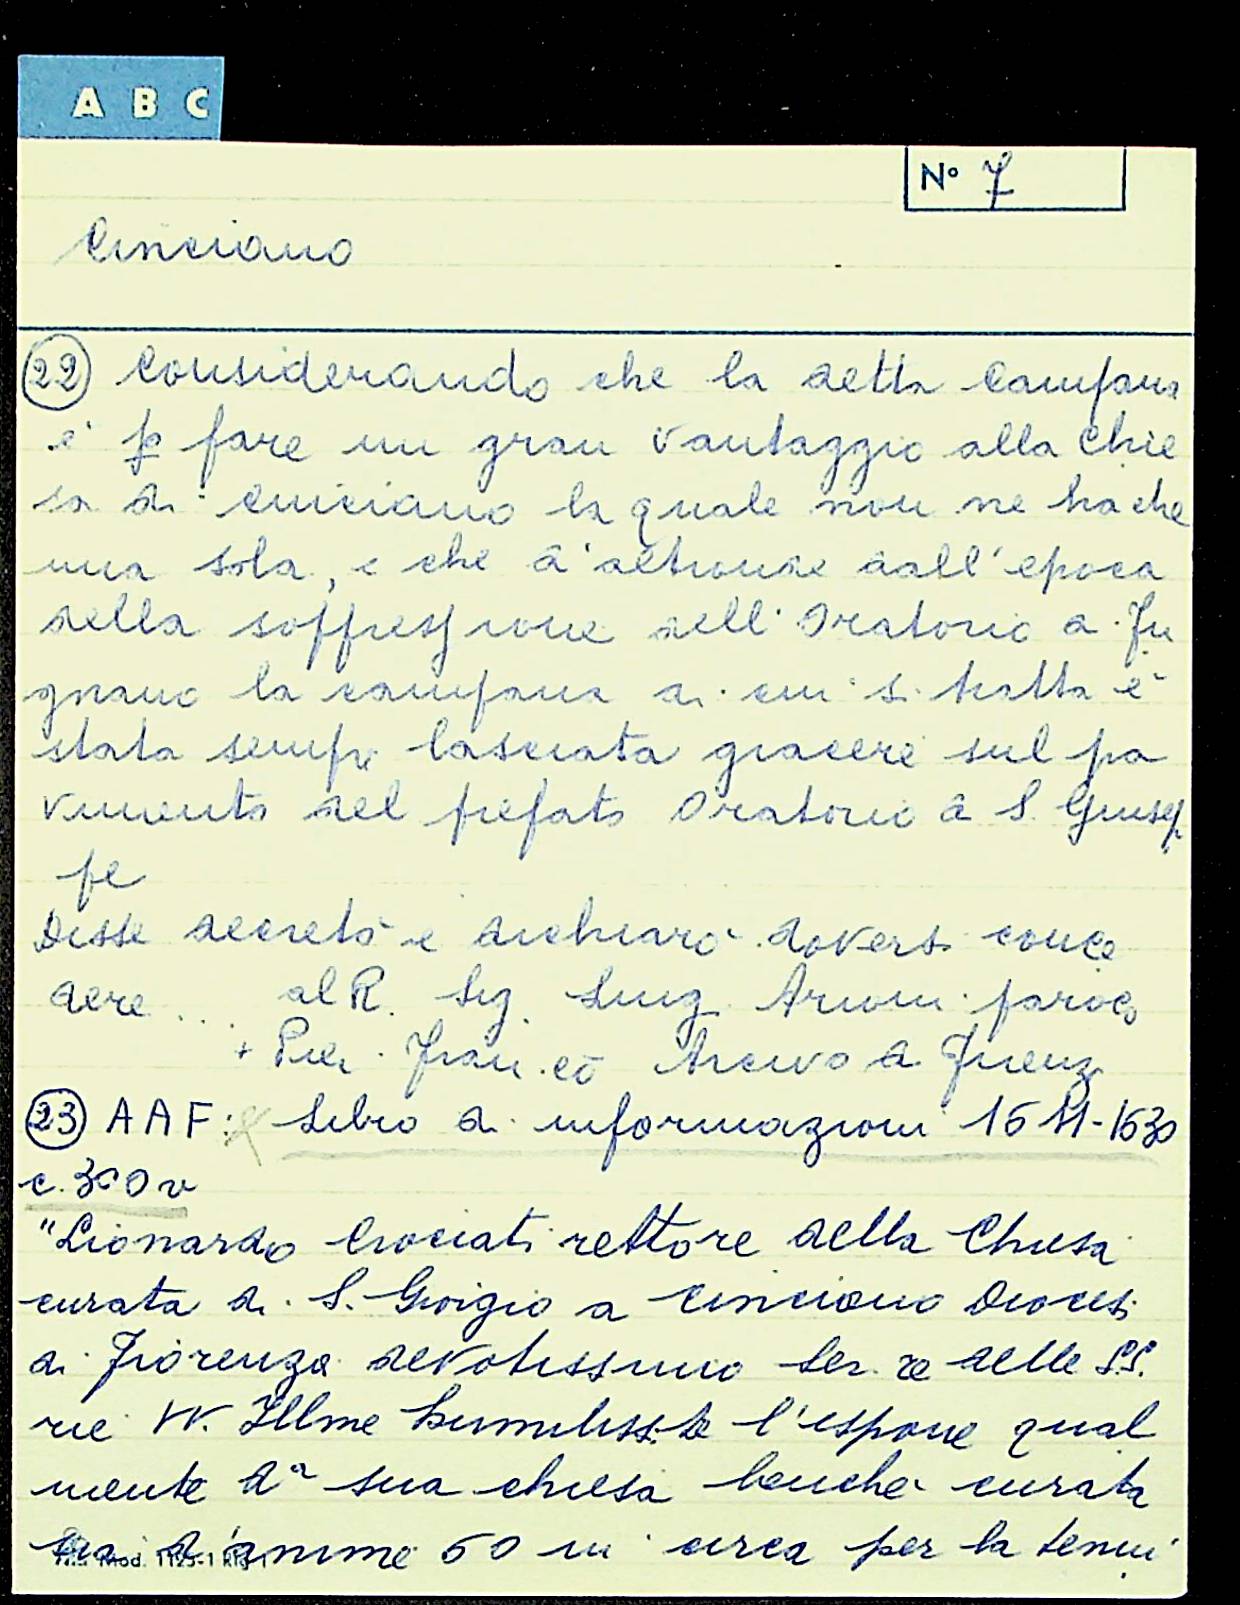 A B C
N° 7
Cinciano
22 Considerando che la detta Campana
è p fare un gran vantaggio alla Chie
sa di Cinciano la quale non ne ha che
una sola, e che d'altronde dall'epoca
della soffressione dell'Oratorio a Ju
gnano la campana di cui si tratta è
stata sempr lasciata giacere sul pa
vimento del prefato Oratorio di S. Giusep
pe
Disse decretò e dichiarò doversi conce
dere ... al R. Sig. Luig. Arioni paroco
+ Pier Fran.co Arcivo di Firenz
23 AAF: Libro di informazioni 1611-1630
c. 300 v
"Lionardo Crociati rettore della Chiesa
curata di S. Giorgio a Cinciano Diocesi
di Fiorenza devotissimo Ser.re delle SS.
rie VV. Illme humiliss.te l'espone qual
mente da sua chiesa benche curata
sia d'anime 60 in circa per la tenui
Mod. 1193-1